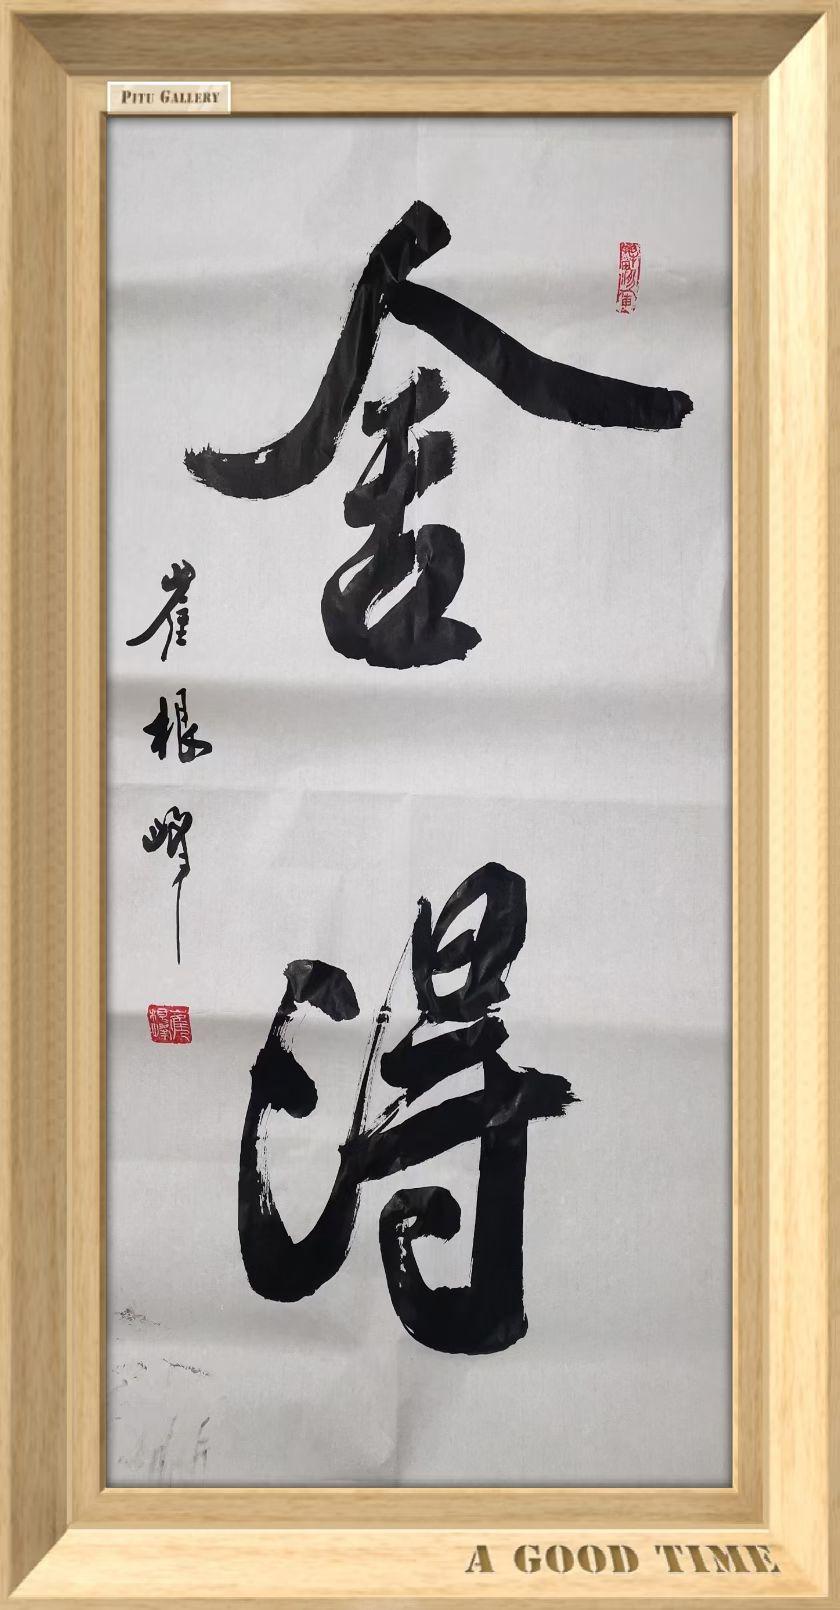 PITU GALLERY
舍得
崔根峰
崔根峰
A GOOD TIME